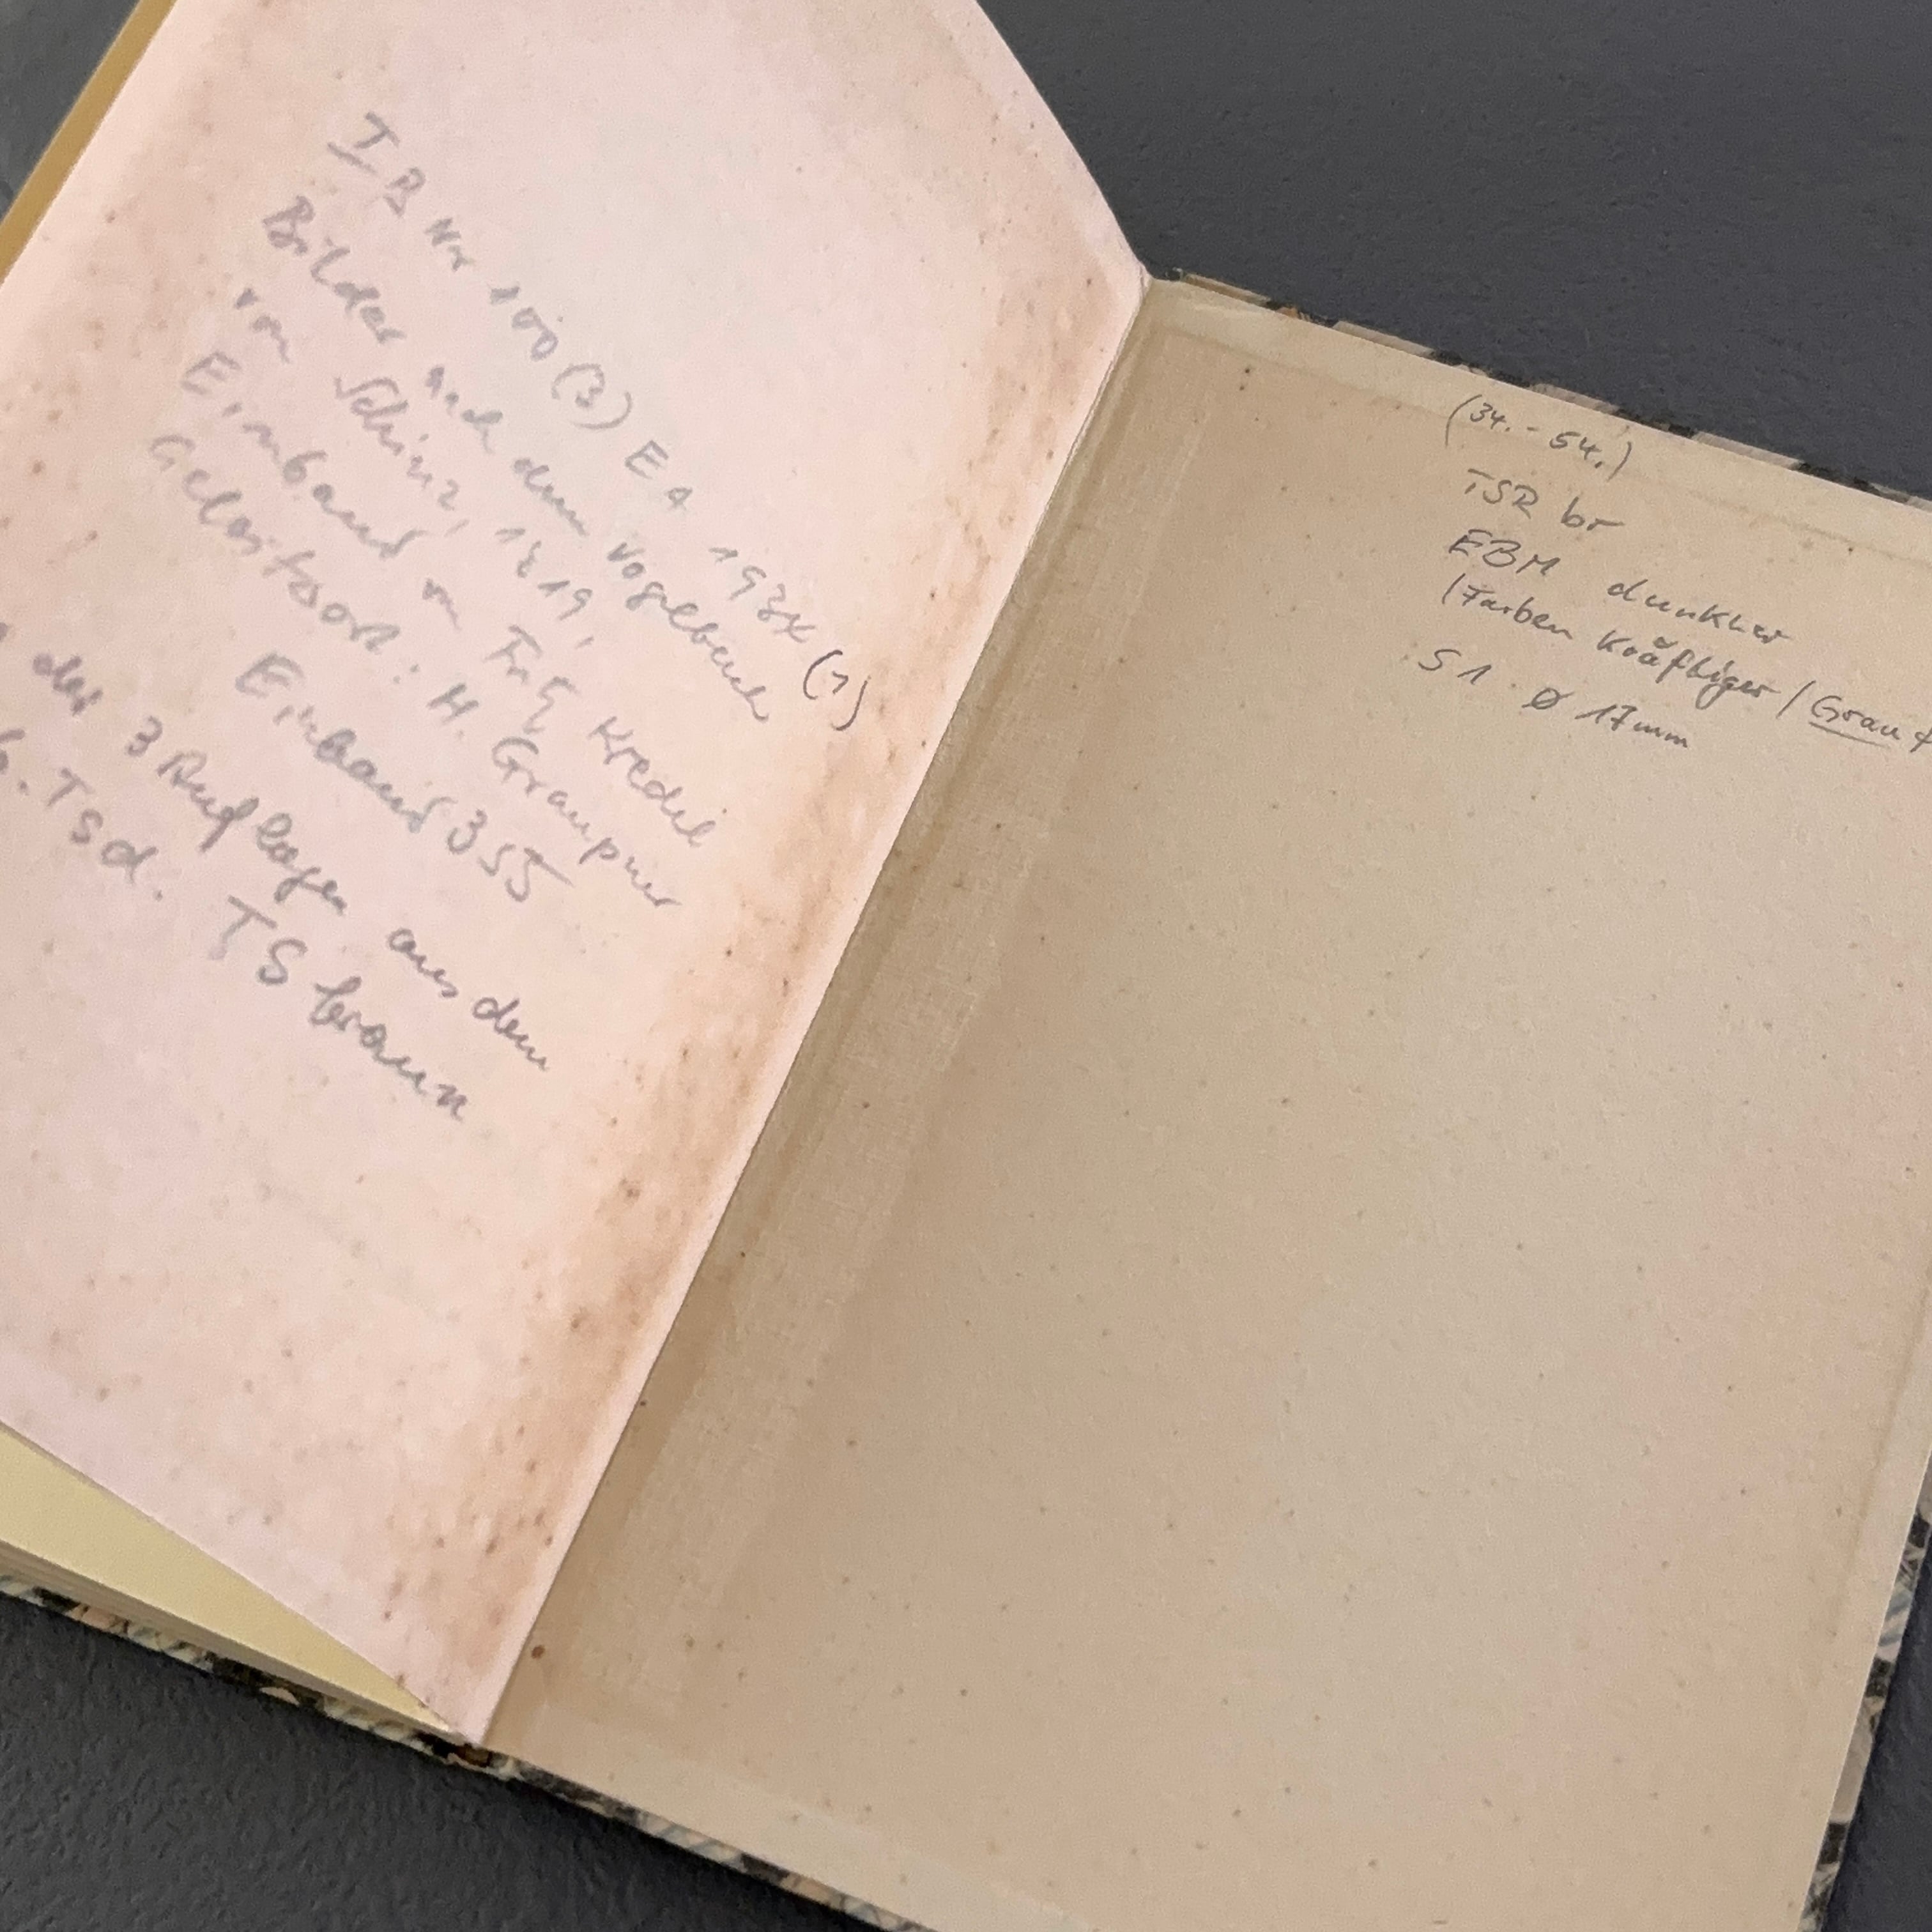 IB Nr 100 (3) EA 193x (1)
Bilder nach dem Vogelbuch
von Schinz, 1819,
Einband von Fritz Kredel
Geleitwort: H. Graupner
Einband 355
der 3 Auflagen aus dem
Tsd. TS braun
(34.-54.)
TSR br
EBM dunkler
(Farben kräftiger / Grau
S1 Ø 17mm